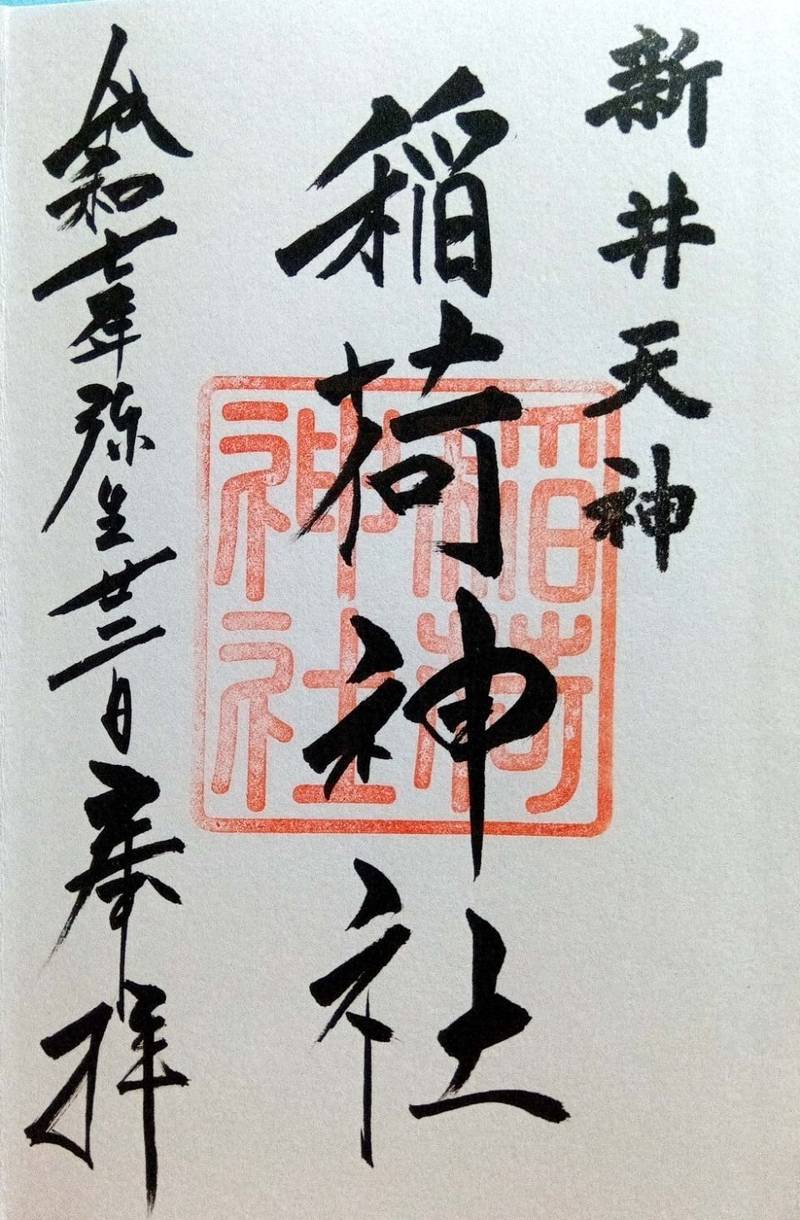 新井天神
稲荷神社
令和七年弥生廿二日奉拝
稲荷
神社